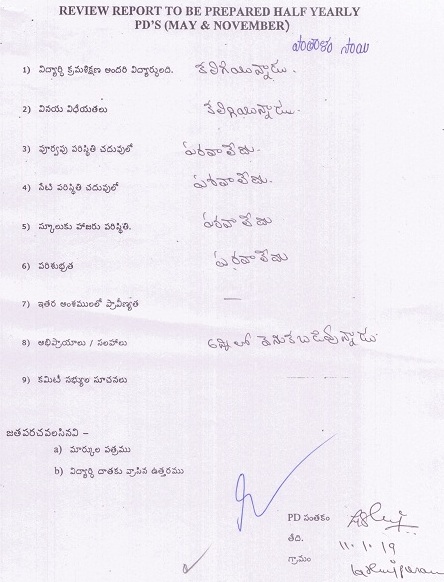 REVIEW REPORT TO BE PREPARED HALF YEARLY
PD'S (MAY & NOVEMBER)
సాయి
1) విద్యార్థి క్రమశిక్షణ అందరి విద్యార్థులది. కలిగియున్నాడు.
2) వినయ విధేయతలు కలిగియున్నాడు.
3) పూర్వపు పరిస్థితి చదువులో పరవాలేదు.
4) నేటి పరిస్థితి చదువులో పరవాలేదు.
5) స్కూలుకు హాజరు పరిస్థితి. పరవాలేదు
6) పరిశుభ్రత పరవాలేదు
7) ఇతర అంశములలో ప్రావీణ్యత —
8) అభిప్రాయాలు / సలహాలు అన్నిలో వెనుకబడివున్నాడు.
9) కమిటి సభ్యుల సూచనలు
జతపరచవలసినవి –
a) మార్కుల పత్రము
b) విద్యార్థి దాతకు వ్రాసిన ఉత్తరము
PD సంతకం
తేది. 11.1.19
గ్రామం